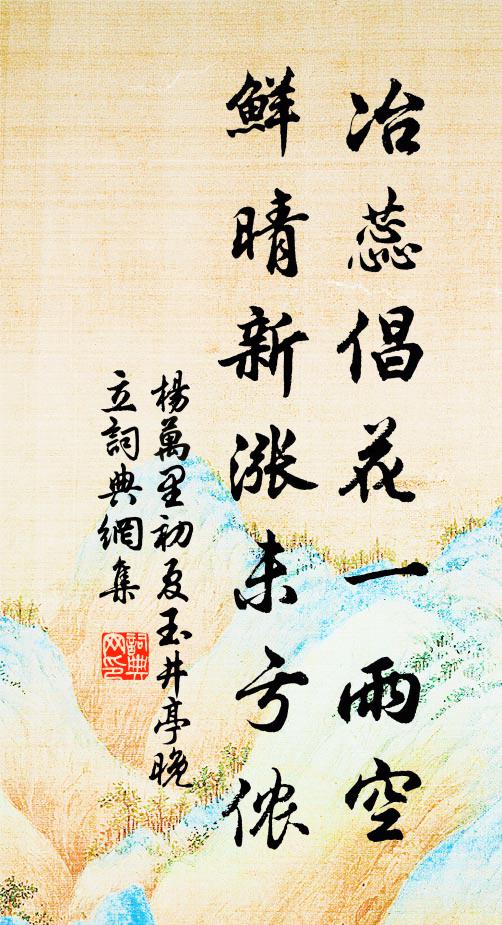 冶蕊倡花一雨空
鮮晴新漲未亏侬
楊萬里初夏玉井亭晚
立詞典網集
詞典
网印